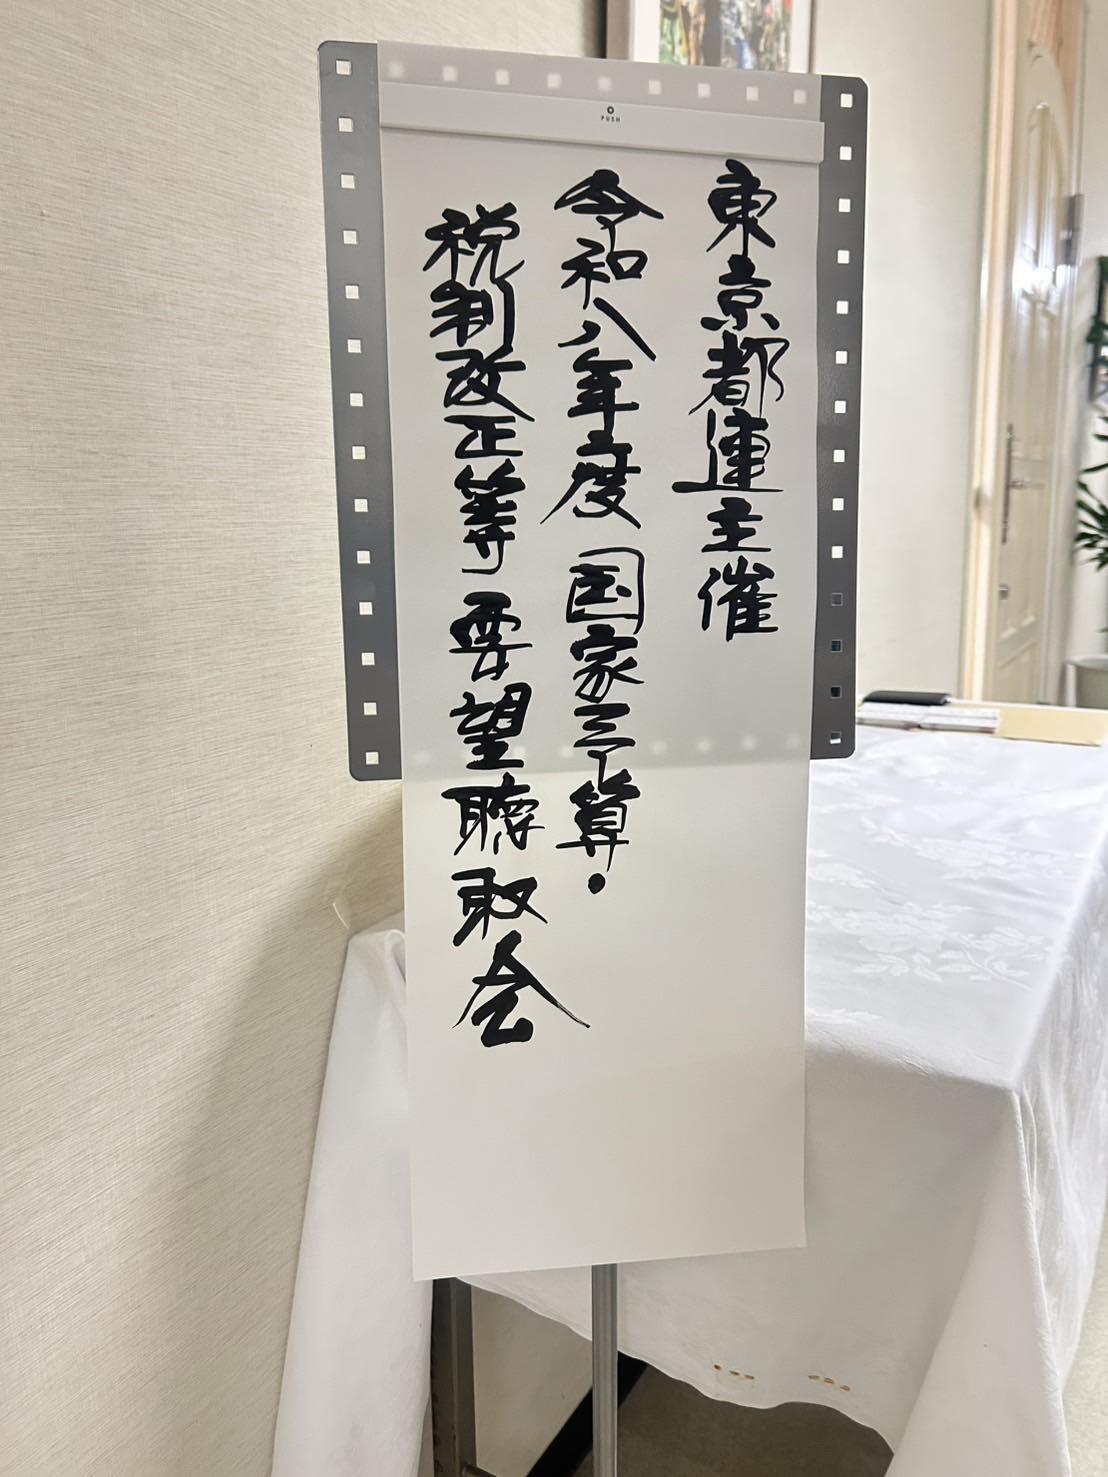 PUSH
東京都連主催
令和八年度 国家予算・
税制改正等要望聴取会